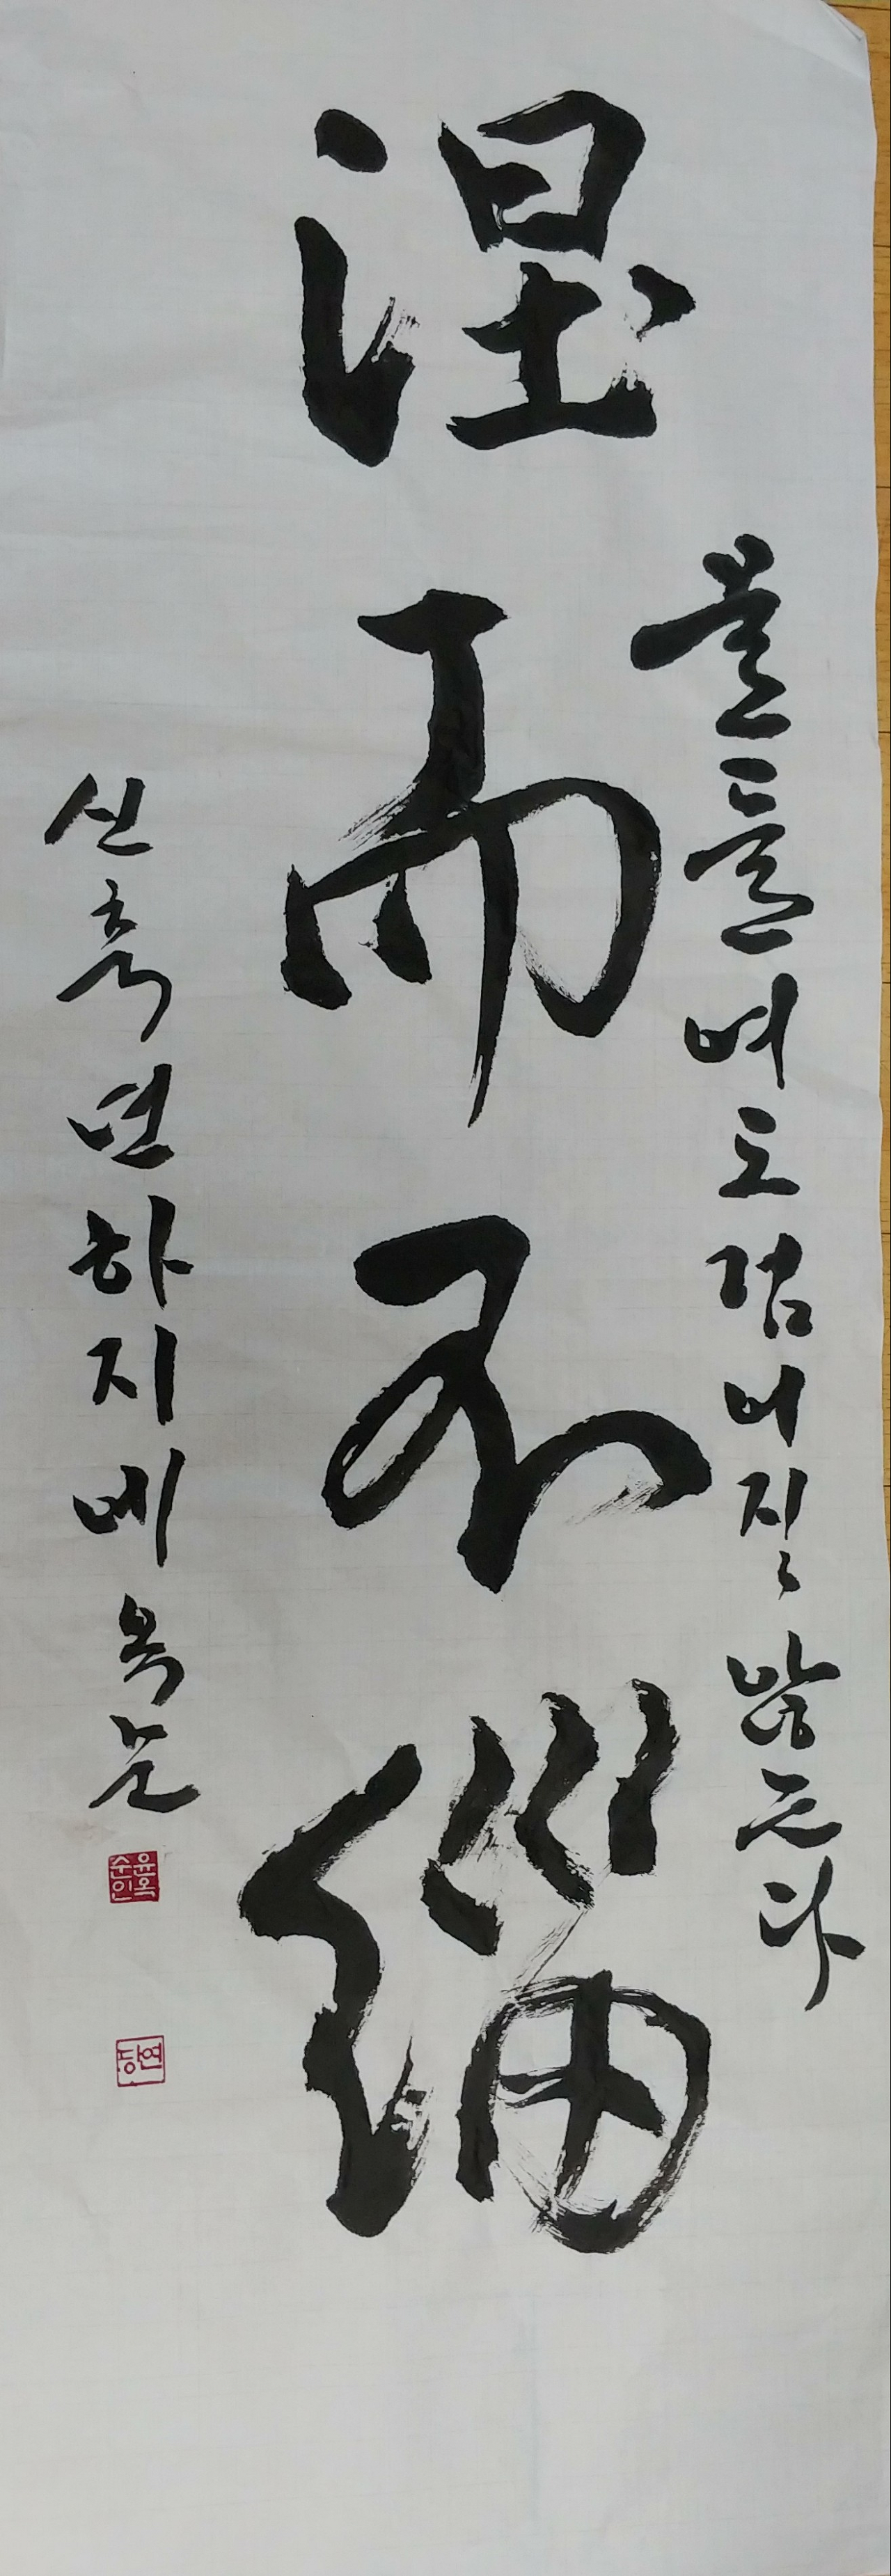 涅而不緇
물들여도 검어지지 않는다
신축년 하지에 옥순
윤옥순인
연당